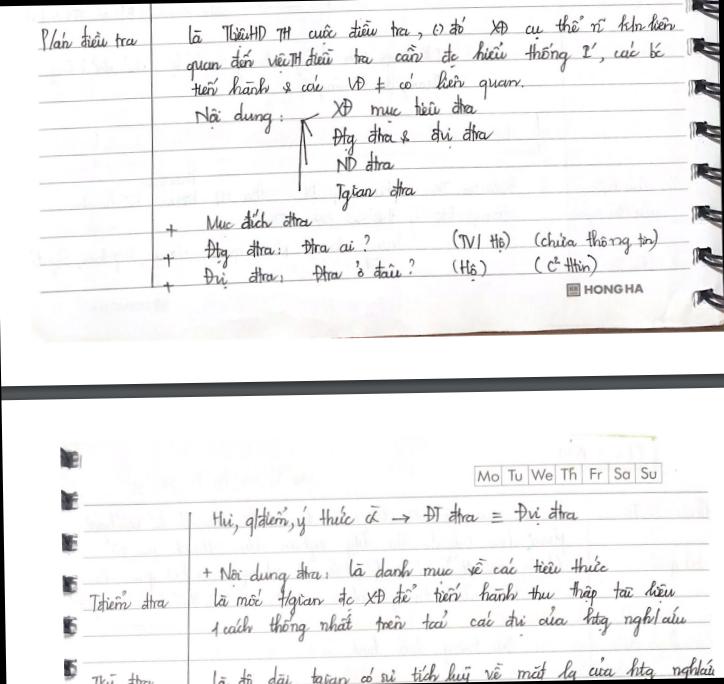 P/án điều tra
là TliệuHD TH cuộc điều tra, () đó XĐ cụ thể n~ k/n liên
quan đến việcTH điều tra cần đc hiểu thống 1', các bc
tiến hành & các VĐ ≠ có liên quan.
Nội dung: XĐ mục tiêu đtra
Đtg đtra & đvị đtra
ND đtra
Tgian đtra
+ Mục đích đtra
+ Đtg đtra: Đtra ai? (TV/ Hộ) (chứa thông tin)
+ Đvị đtra: Đtra ở đâu? (Hộ) (C² ttin)
HONG HA
Mo Tu We Th Fr Sa Su
Hvi, q/điểm, ý thức → ĐT đtra ≡ Đvị đtra
+ Nội dung đtra: là danh mục về các tiêu thức
Tđiểm đtra là mốc t/gian đc XĐ để tiến hành thu thập tài liệu
1 cách thống nhất trên tcả các đvị của htg nghl/cứu
là độ dài tgian có sự tích luỹ về mặt lg của htg nghl/cứu